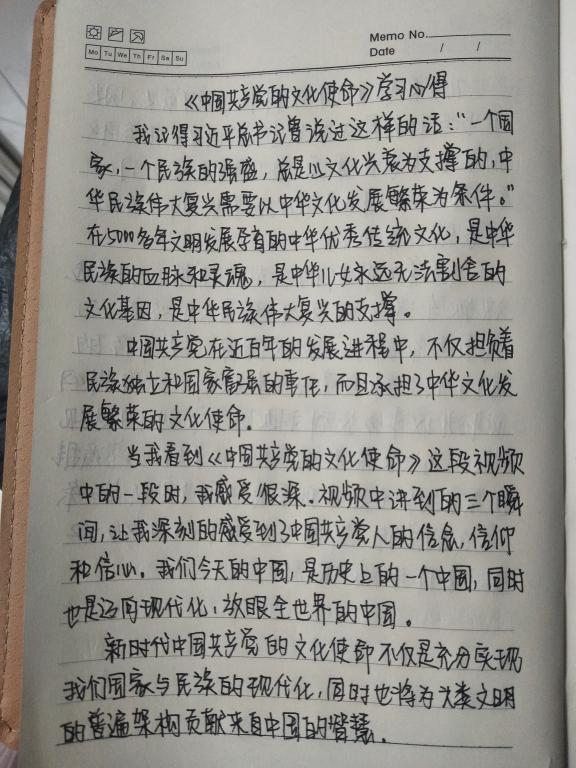 Memo No.
Mo Tu We Th Fr Sa Su
Date / /
《中国共产党的文化使命》学习心得
我记得习近平总书记曾说过这样的话："一个国
家,一个民族的强盛,总是以文化兴衰为支撑的,中
华民族伟大复兴需要以中华文化发展繁荣为条件。"
在5000多年文明发展孕育的中华优秀传统文化,是中华
民族的血脉和灵魂,是中华儿女永远无法割舍的
文化基因,是中华民族伟大复兴的支撑。
中国共产党在近百年的发展进程中,不仅担负着
民族独立和国家富强的责任,而且承担了中华文化发
展繁荣的文化使命.
当我看到《中国共产党的文化使命》这段视频
中的一段时,我感受很深.视频中讲到的三个瞬
间,让我深刻的感受到了中国共产党人的信念,信仰
和信心.我们今天的中国,是历史上的一个中国,同时
也是迈向现代化,放眼全世界的中国。
新时代中国共产党的文化使命不仅是充分实现
我们国家与民族的现代化,同时也将为人类文明
的普遍架构贡献来自中国的智慧.